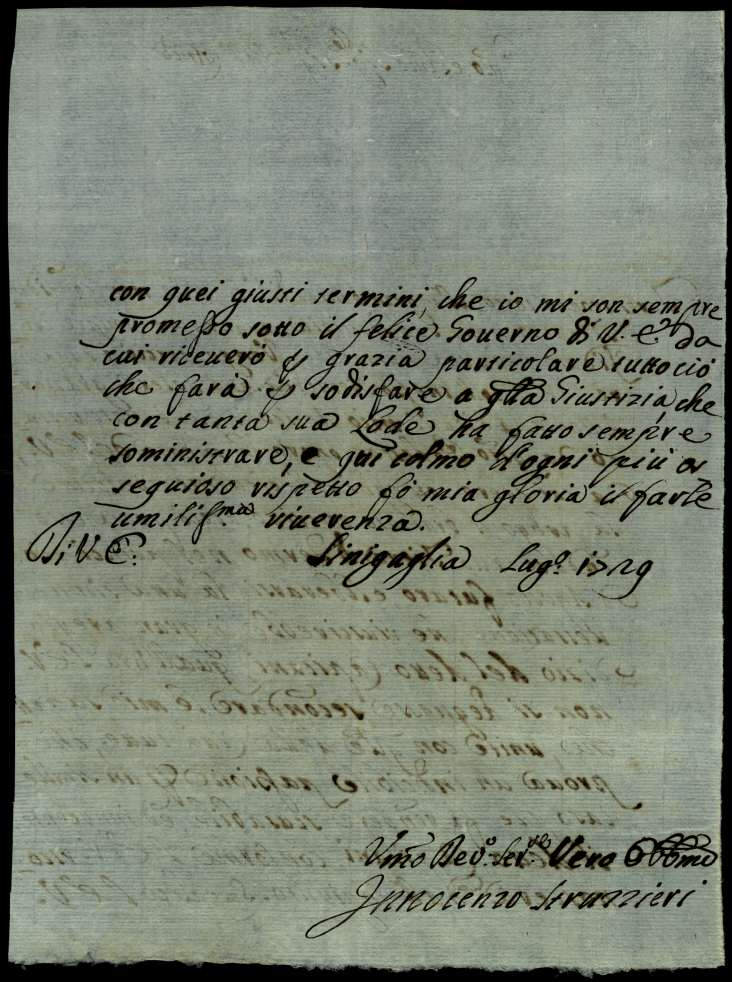 con quei giusti termini, che io mi son sempre
promesso sotto il felice Gouerno di V. E.ª da
cui riceuerò ꝑ grazia particolare tutto ciò
che farà ꝑ sodisfare a qlla Giustizia, che
con tanta sua Lode ha fatto sempre
soministrare, e qui colmo d'ogni più os
sequioso rispetto fò mia gloria il farle
umiliss.ma riuerenza.
Di V. E.
Sinigaglia Lug.º 1729
Vmo Dev.º Ser.re Vero Obbmo
Innocenzo Struzzieri